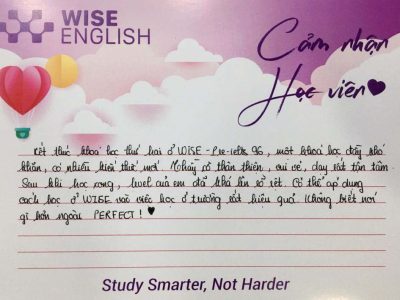 WISE
ENGLISH
Cảm nhận
Học viên
Kết thúc khoá học thứ hai ở WISE - Pre-ielts 96, một khoá học đầy khó
khăn, có nhiều kiến thức mới. Thầy cô thân thiện, vui vẻ, dạy rất tận tâm.
Sau khi học xong, level của em đã khá lên rõ rệt. Có thể áp dụng
cách học ở WISE vào việc học ở trường rất hiệu quả. Không biết nói
gì hơn ngoài PERFECT!
Study Smarter, Not Harder